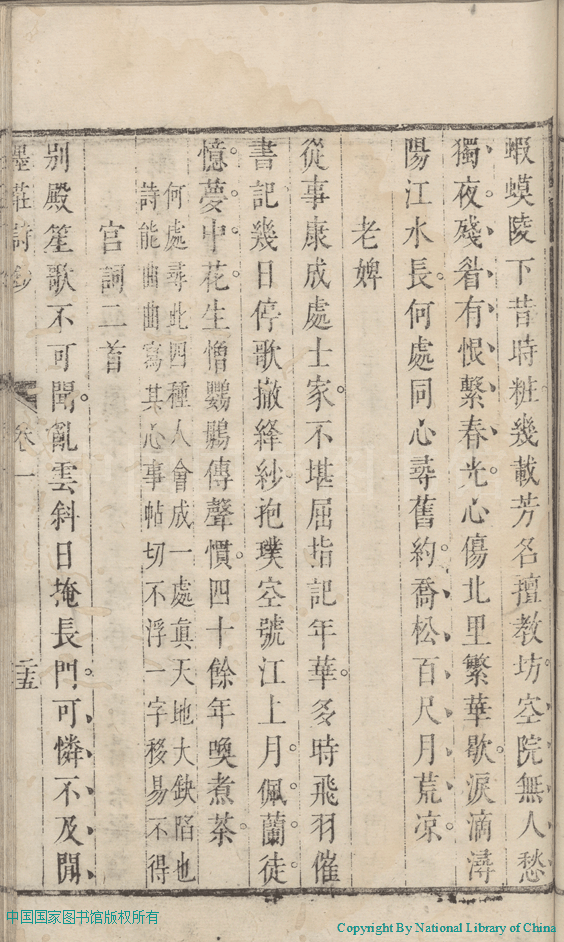 蝦蟆陵下昔時粧幾載芳名擅教坊空院無人愁
獨夜殘眉有恨繫春光心傷北里繁華歇淚滴潯
陽江水長何處同心尋舊約喬松百尺月荒凉
老婢
從事康成處士家不堪屈指記年華多時飛羽催
書記幾日停歌撤絳紗抱璞空號江上月佩蘭徒
憶夢中花生憎鸚鵡傳聲慣四十餘年喚煮茶
何處尋此四種人會成一處真天地大缺陷也
詩能曲曲寫其心事帖切不浮一字移易不得
宮詞二首
別殿笙歌不可聞亂雲斜日掩長門可憐不及閒
墨莊詩鈔
卷一
二十五
中国国家图书馆版权所有
Copyright By National Library of China